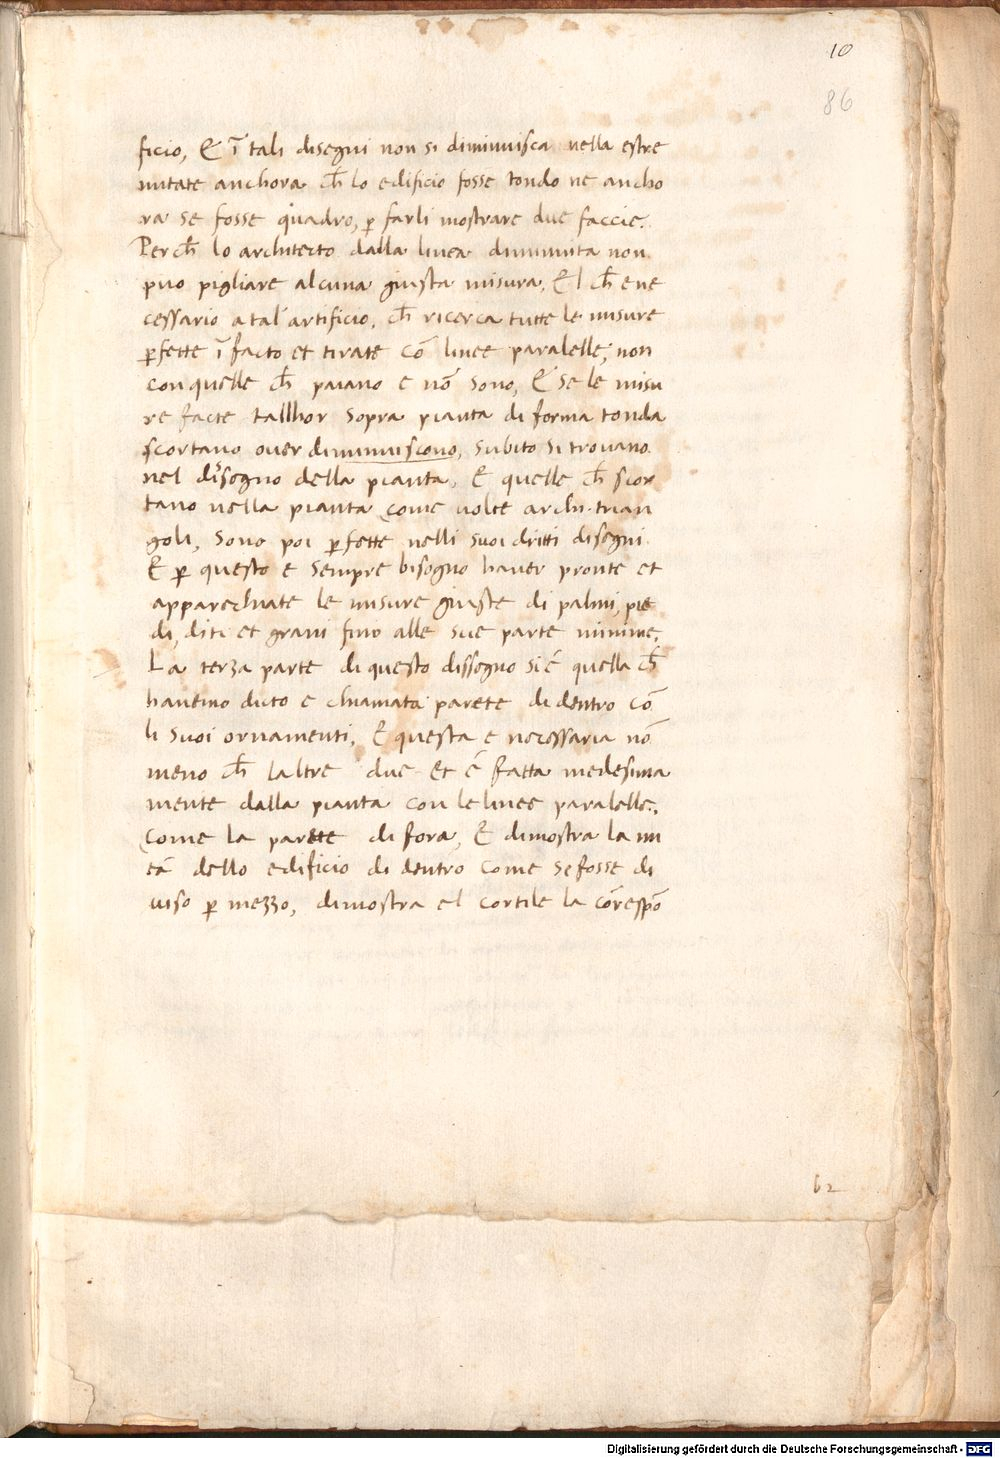 10
86
ficio, & ī tali disegni non si diminuisca nella estre
mitate anchora ch̄ lo edificio fosse tondo ne ancho
ra se fosse quadro, ꝑ farli mostrare due faccie.
Perch̄ lo architecto dalla linea diminuita non
puo pigliare alcuna giusta misura, El ch̄ e ne
cessario a tal artificio, ch̄ ricerca tutte le misure
ꝑfette ī facto et tirate cō linee paralelle, non
con quelle ch̄ paiano e nō sono, & se le misu
re facte tallhor sopra pianta di forma tonda
scortano over diminuiscono, subito si trovano
nel disogno della pianta, & quelle ch̄ scor
tano nella pianta come volte archi trian
goli, sono poi ꝑfette nelli suoi dritti disegni
& ꝑ questo e sempre bisogno haver pronte et
apparechiate le misure giuste di palmi, pie
di, diti et grani fino alle sue parte minime,
La terza parte di questo dissegno si ē quella ch̄
havemo dicto e chiamata parete di dentro cō
li suoi ornamenti, & questa e necessaria nō
meno ch̄ laltre due et ē fatta medesima
mente dalla pianta con le linee paralelle,
come la parette di fora, & dimostra la mi
tā dello edificio di dentro come se fosse di
viso ꝑ mezzo, dimostra el cortile la cōrespō
62
Digitalisierung gefördert durch die Deutsche Forschungsgemeinschaft - DFG